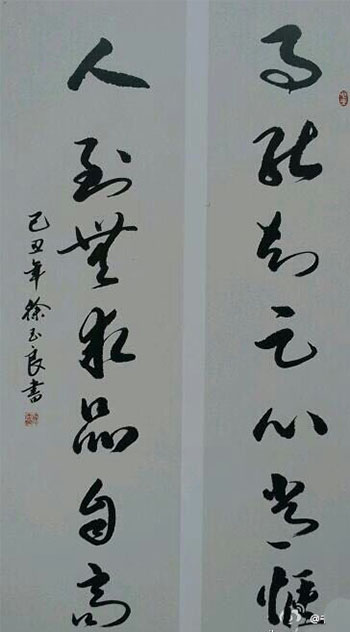 事能知足心常愜
人到無求品自高
己丑年徐玉良書